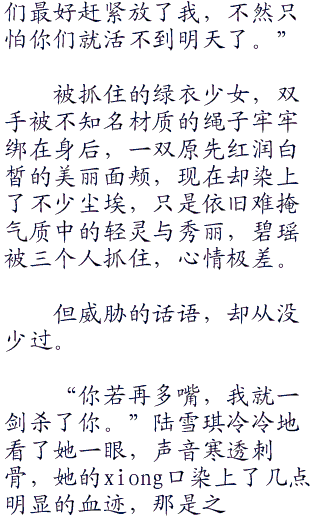 们最好赶紧放了我，不然只
怕你们就活不到明天了。”
被抓住的绿衣少女，双
手被不知名材质的绳子牢牢
绑在身后，一双原先红润白
皙的美丽面颊，现在却染上
了不少尘埃，只是依旧难掩
气质中的轻灵与秀丽，碧瑶
被三个人抓住，心情极差。
但威胁的话语，却从没
少过。
“你若再多嘴，我就一
剑杀了你。”陆雪琪冷冷地
看了她一眼，声音寒透刺
骨，她的xiong口染上了几点
明显的血迹，那是之